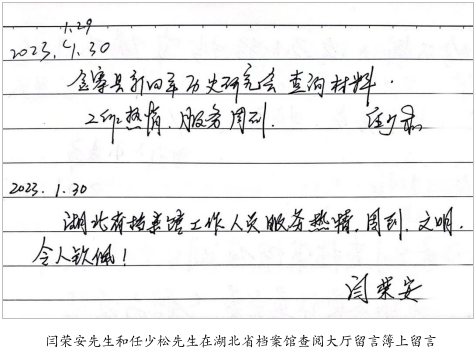 1.29
2023.4.30
金寨县新四军历史研究会查询材料.
工作热情、服务周到.
任少松
2023.1.30
湖北省档案馆工作人员服务热情,周到,文明,
令人钦佩!
闫荣安
闫荣安先生和任少松先生在湖北省档案馆查阅大厅留言簿上留言